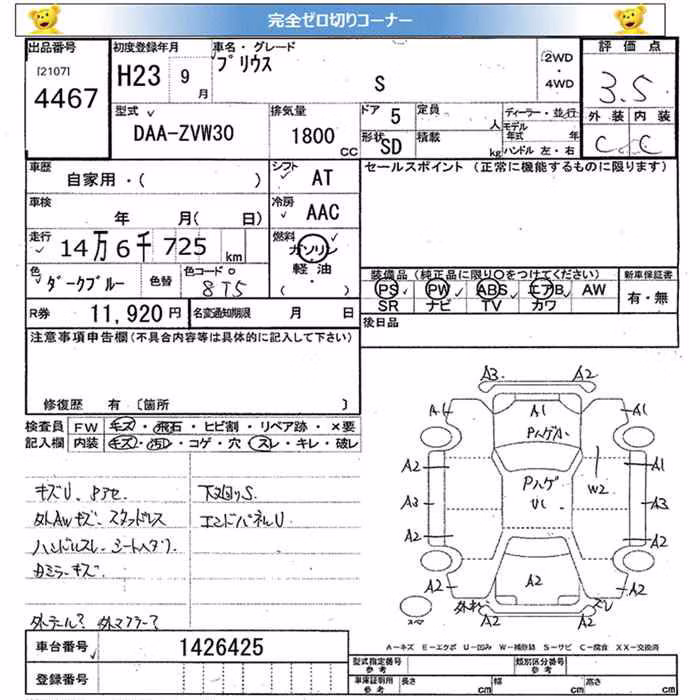 完全ゼロ切りコーナー
出品番号 初度登録年月 車名・グレード 評価点
[2107] H23 9月 プリウス 2WD・4WD
4467 S 3.5
型式 排気量 ドア 5 定員 人 ディーラー・並行 外装 内装
DAA-ZVW30 1800 CC 形状 SD 積載 kg モデル年式 年 C C
ハンドル 左・右
車歴 シフト AT セールスポイント(正常に機能するものに限ります)
自家用・( )
車検 年 月( 日) 冷房 AAC
走行 14万6千725 km 燃料 ガソリン
軽油
( ・ )
色 ダークブルー 色替 色コード 8T5 装備品(純正品に限り○をつけてください) 新車保証書
PS PW ABS エアB AW 有・無
R券 11,920円 名変通知期限 月 日 SR ナビ TV カワ
注意事項申告欄(不具合内容等は具体的に記入して下さい) 後日品
修復歴 有 〔箇所 〕
検査員 FW キズ・飛石・ヒビ割・リペア跡・×要
記入欄 内装 キズ・汚レ・コゲ・穴・スレ・キレ・破レ
キズU 下廻りS
外AWキズ スタッドレス エンドパネルU
ハンドルスレ シートヘタリ
ミラーキズ
外テール? 外マフラー?
A3 A2
A1 A1 A1
PハゲA
A2 Pハゲ A1
U1 W2
A3 A3
A2 A2
A2 A2 A2
A2 A2 スレ
スペ
A-キズ E-エクボ U-凹み W-補修跡 S-サビ C-腐食 XX-交換済
車台番号 1426425 型式指定番号 参考 類別区分番号 参考
登録番号 車庫証明用 参考 長さ cm 幅 cm 高さ cm